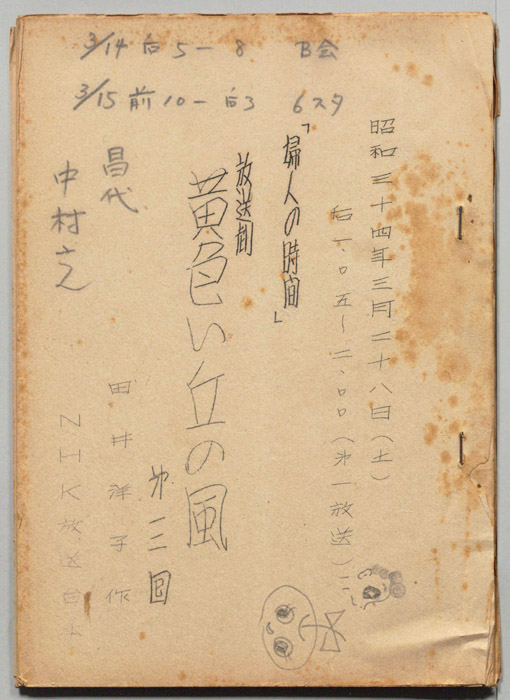 3/14 后5-8 B会
3/15 前10-后3 6スタ
昭和三十四年三月二十八日(土)
后一.〇五〜二.〇〇(第一放送)
「婦人の時間」
放送劇
黄色い丘の風
第三回
昌代
中村
田井洋子作
NHK放送台本